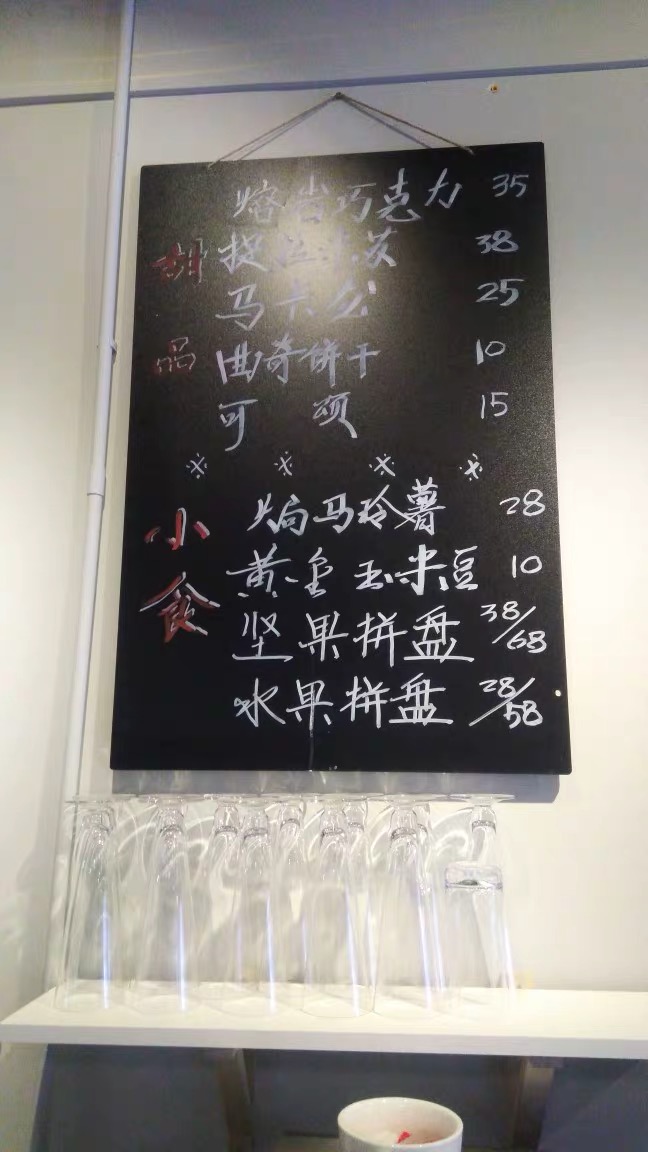 熔岩巧克力 35
提拉米苏 38
马卡龙 25
曲奇饼干 10
可颂 15
甜品
※ ※ ※ ※
小食
焗马玲薯 28
黄金玉米豆 10
坚果拼盘 38/68
水果拼盘 28/58